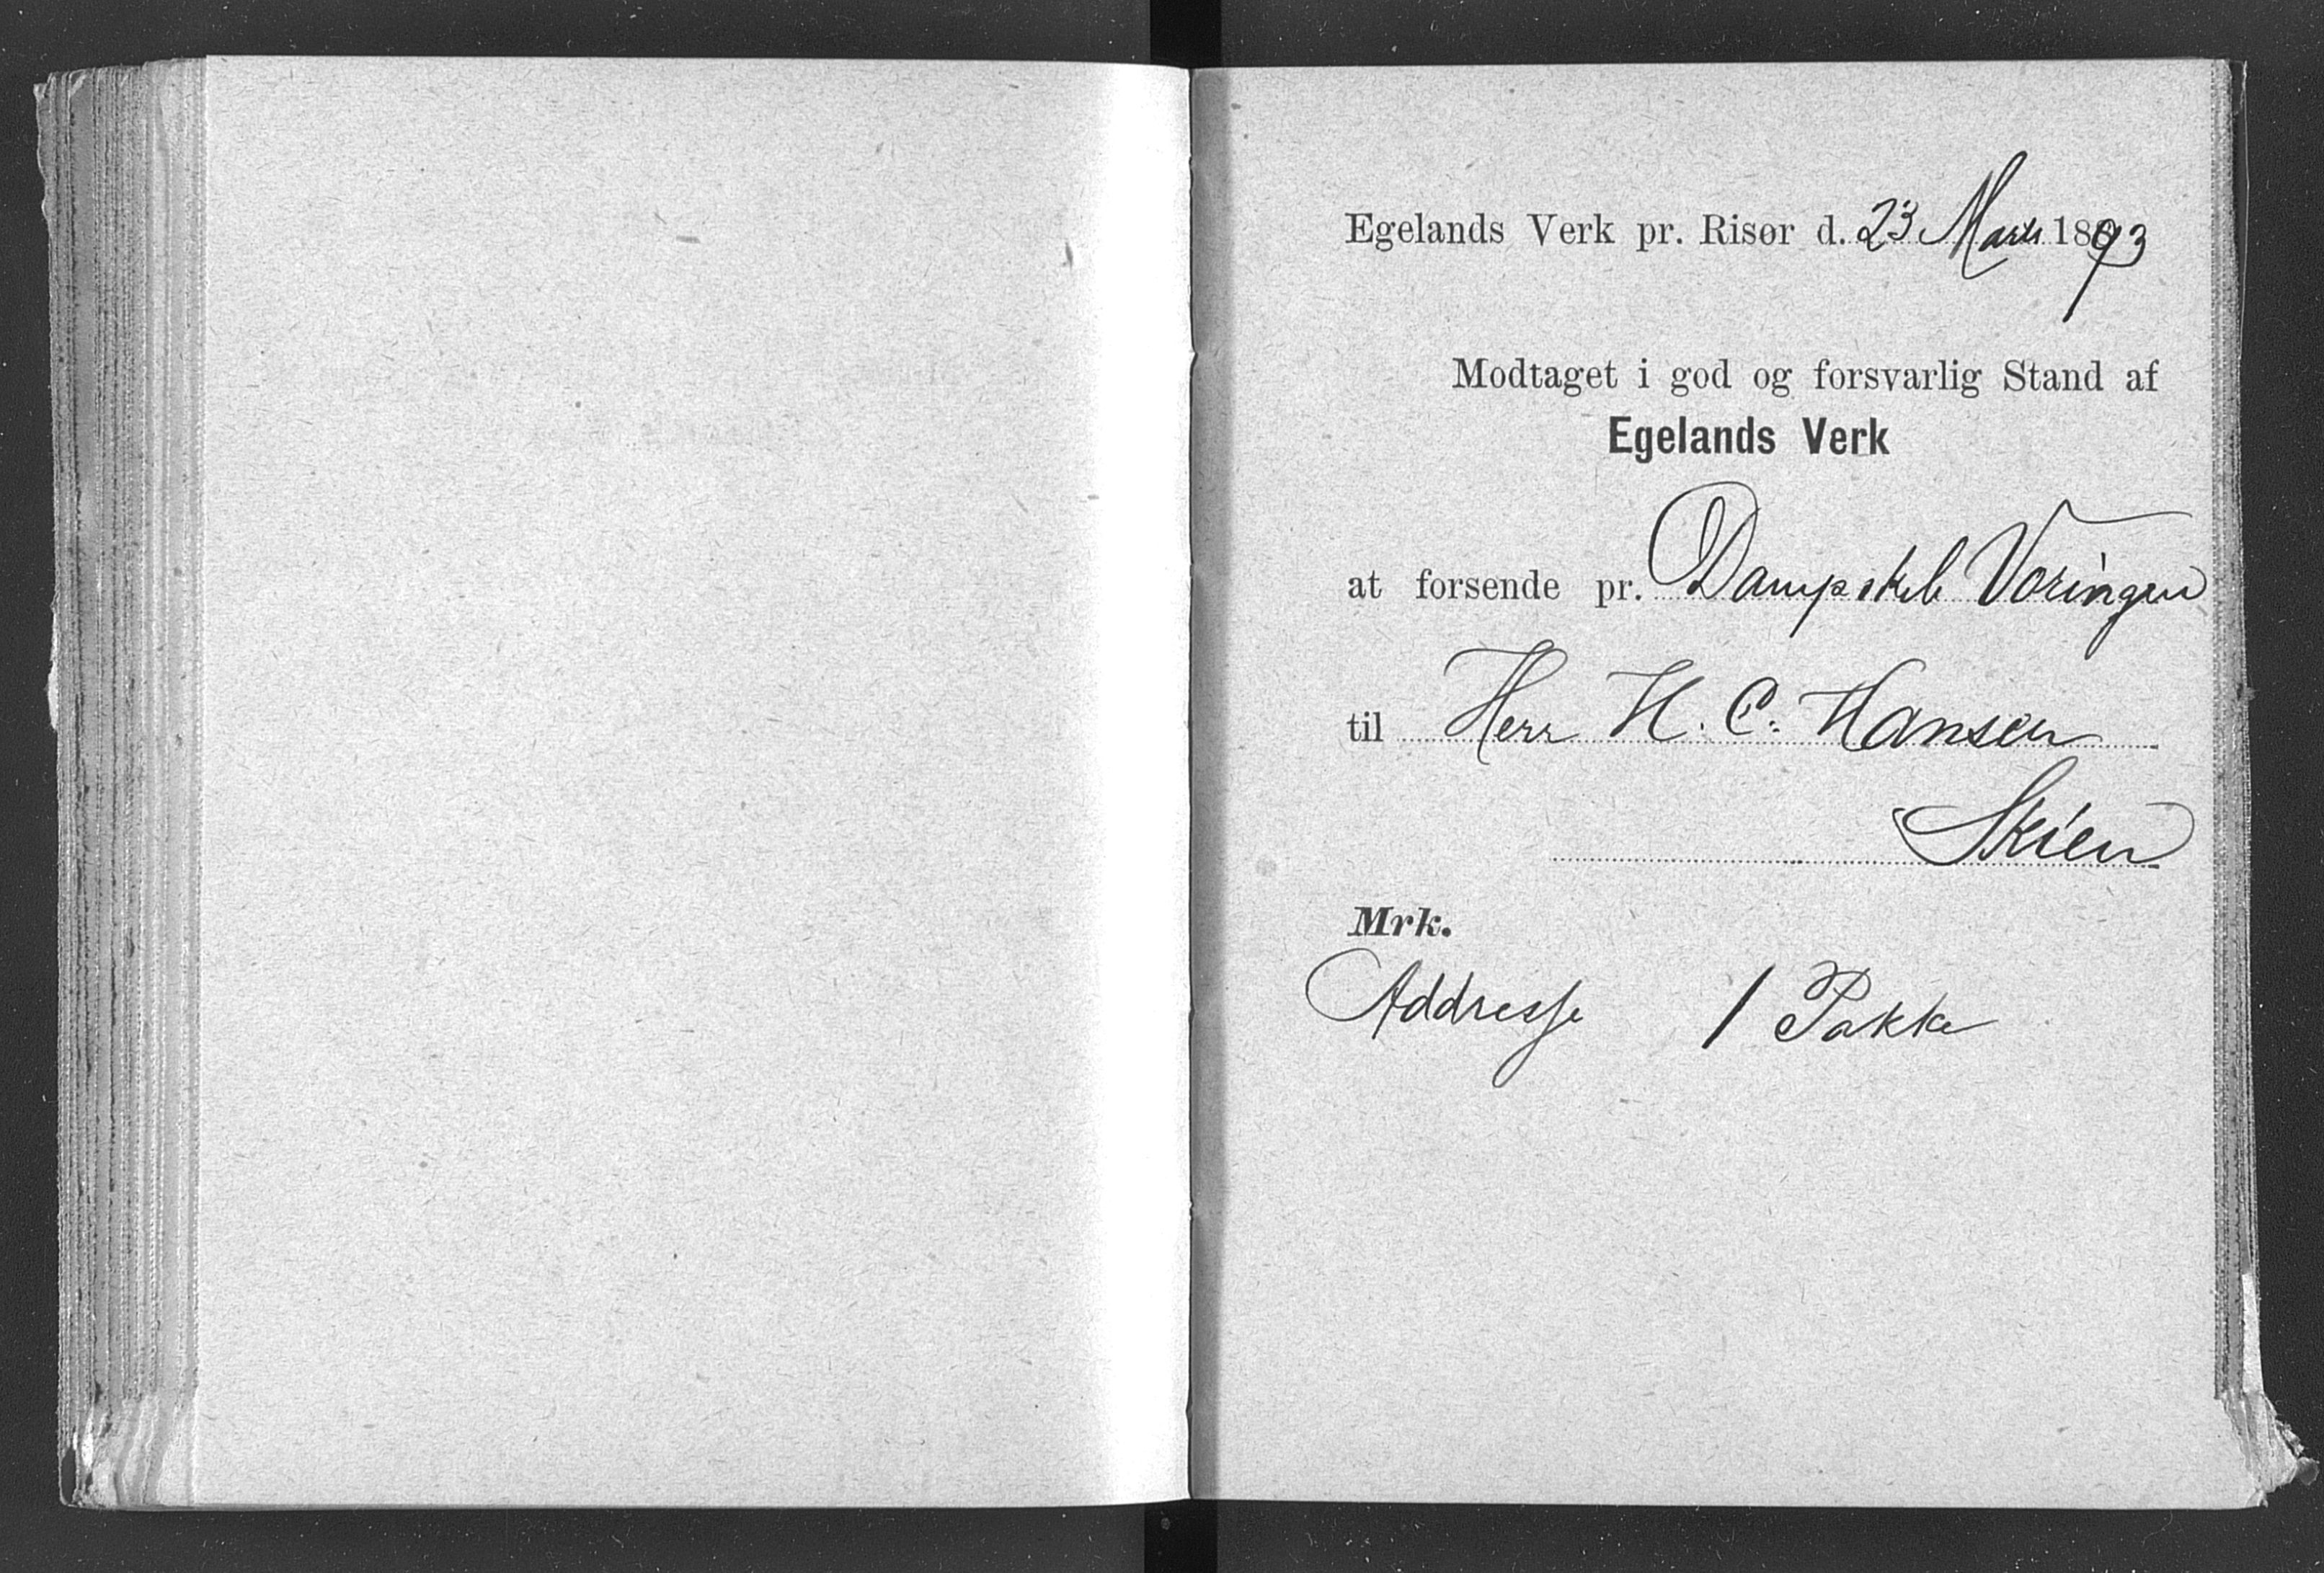 Egelands Verk pr. Risør d. 23 Marts 1893
Modtaget i god og forsvarlig Stand af
Egelands Verk
at forsende pr. Dampskib Voringen
til Herr H. C. Hansen
Skien
Mrk.
Addresse 1 Pakke